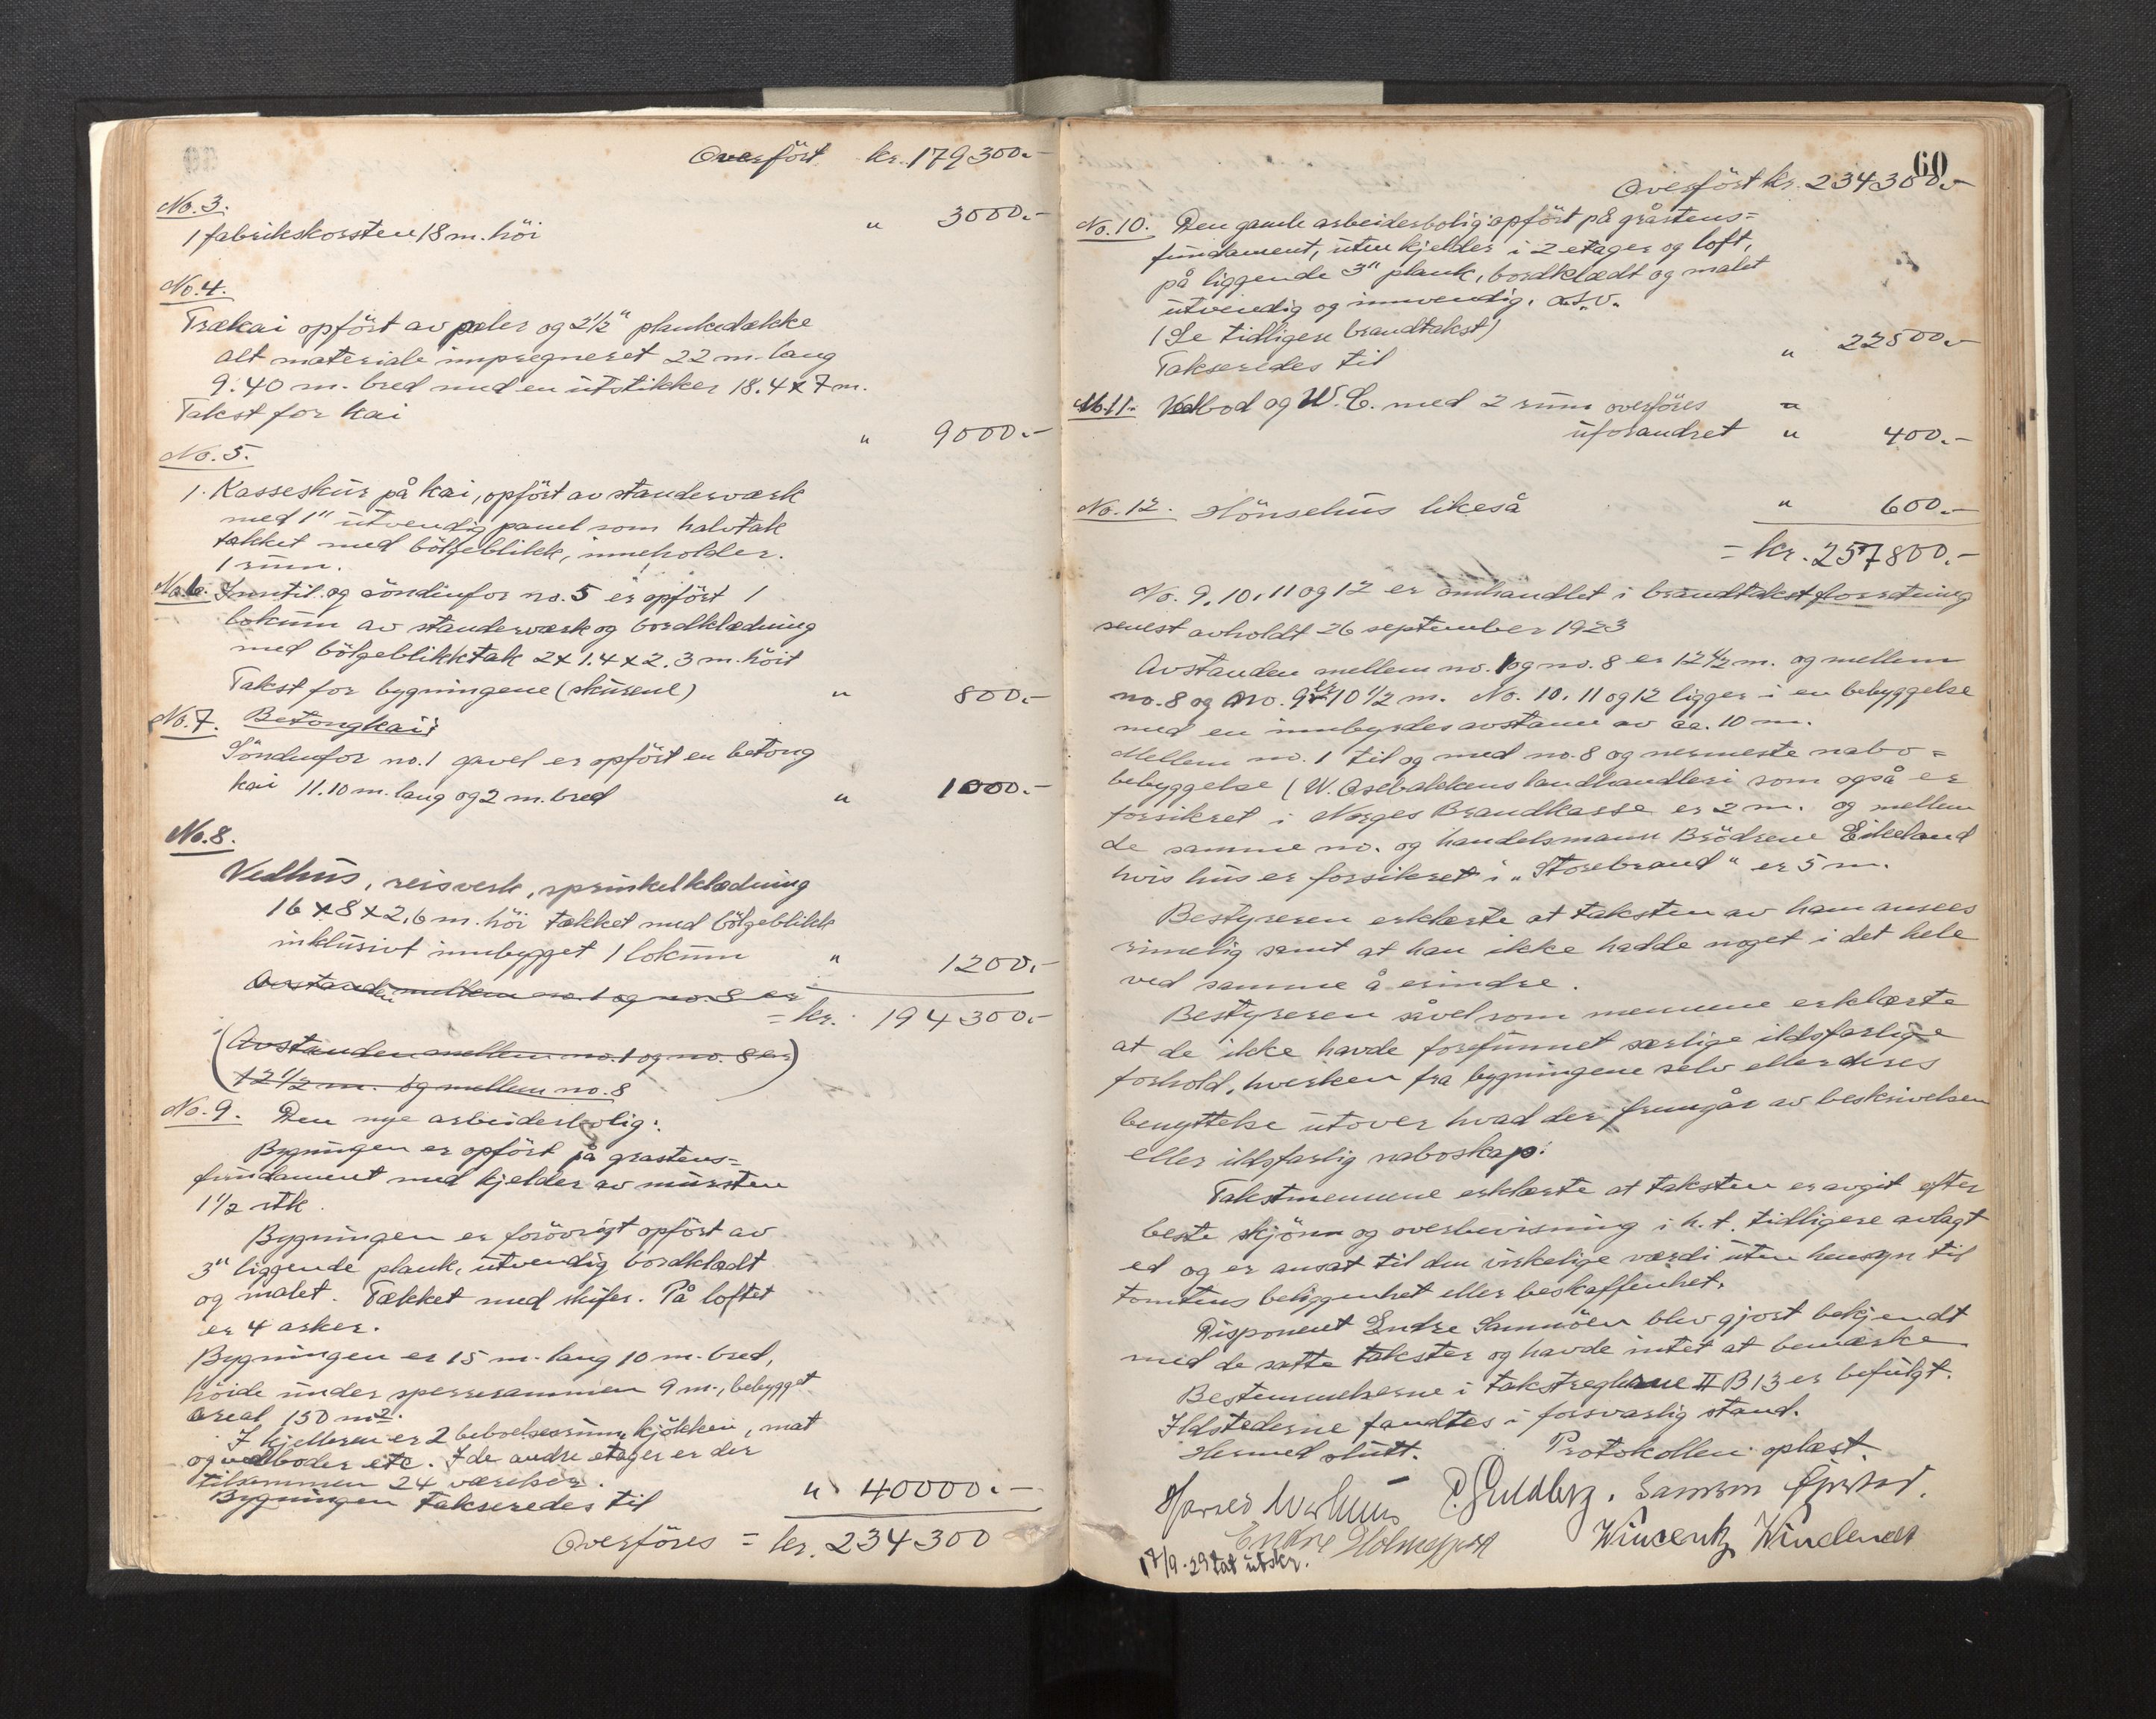 Overført kr. 179300.-
No. 3.
1 fabrikskorsten 18 m. höi " 3000.-
No. 4.
Trækai opfört av peler og 2 1/2" plankedække
alt materiale impregneret 22 m. lang
9.40 m. bred med en utstikker 18.4 x 7 m.
Takst for kai " 9000.-
No. 5.
1. Kasseskur på kai, opfört av standerværk
med 1" utvendig panel som halvtak
tækket med bölgeblikk, inneholder.
1 rum.
No. 6. Inntil og söndenfor no. 5 er opfört 1
lokum av standerværk og bordklædning
med bölgeblikktak 2 x 1.4 x 2.3 m. höit
Takst for bygningene (skurene) " 800.-
No. 7. Betongkai:
Söndenfor no. 1 gavel er opfört en betong
kai 11.10 m. lang og 2 m. bred " 1000.-
No. 8.
Vedhus, reisverk, sprinkelklædning
16 x 8 x 2,6 m. höi tækket med bölgeblikk
inklusivt innbygget 1 lokum " 1200.-
Avstanden mellem no. 1 og no. 8 er
= kr. 194300.-
(Avstanden mellem no. 1 og no. 8 er
12 1/2 m. og mellem no. 8)
No. 9. Den nye arbeiderbolig:
Bygningen er opfört på grastens=
fundament med kjelder av mursten
1 1/2 stk.
Bygningen er forövrigt opfört av
3" liggende plank, utvendig bordklædt
og malet. Tækket med skifer. På loftet
er 4 arker.
Bygningen er 15 m. lang 10 m. bred,
höide under sperrerammen 9 m., bebygget
areal 150 m2.
I kjelleren er 2 beboelsesrum, kjökken, mat
og vedboder etc. I de andre etager er der
tilsammen 24 værelser.
Bygningen takseredes til " 40000.-
Overföres = kr. 234300
60
Overfört kr. 234300.-
No. 10. Den gamle arbeiderbolig opfört på gråstens=
fundament, uten kjelder i 2 etager og loft,
på liggende 3" plank, bordklædt og malet
utvendig og innvendig. o.s.v.
(Se tidligere brandtakst)
Takseredes til " 22500.-
No. 11. Vedbod og W.C. med 2 rum overföres "
uforandret " 400.-
No. 12. Hönsehus likeså " 600.-
= kr. 257800.-
No. 9, 10, 11 og 12 er omhandlet i brandtakstforretning
senest avholdt 26 september 1923
Avstanden mellem no. 1 og no. 8 er 12 1/2 m. og mellem
no. 8 og no. 9 er 10 1/2 m. No. 10, 11 og 12 ligger i en bebyggelse
med en innbyrdes avstann av ca. 10 m.
Mellem no. 1 til og med no. 8 og nermeste nabo=
bebyggelse (W. Osebakkens landhandleri som også er
forsikret i Norges Brandkasse er 2 m. og mellem
de samme no. og handelsmann Brödrene Eikeland
hvis hus er forsikret i "Storebrand" er 5 m.
Bestyreren erklærte at taksten av ham ansees
rimelig samt at han ikke hadde noget i det hele
ved samme å erindre.
Bestyreren såvelsom mennene erklærte
at de ikke havde forefunnet særlige ildsfarlige
forhold, hverken fra bygningene selv eller deres
benyttelse utover hvad der fremgår av beskrivelsen
eller ildsfarlig naboskap.
Takstmennene erklærte at taksten er avgit efter
beste skjönn og overbevisning i h.t. tidligere avlagt
ed og er ansat til den virkelige værdi uten hensyn til
tomtens beliggenhet eller beskaffenhet.
Disponent Endre Samnöen blev gjort bekjendt
med de satte takster og havde intet at bemærke
Bestemmelserne i takstreglerne II B 13 er befulgt.
Ildstederne fandtes i forsvarlig stand.
Hermed slutt. Protokollen oplæst.
P. Guldberg. Samson
Endre
17/9-29 tat utskr.